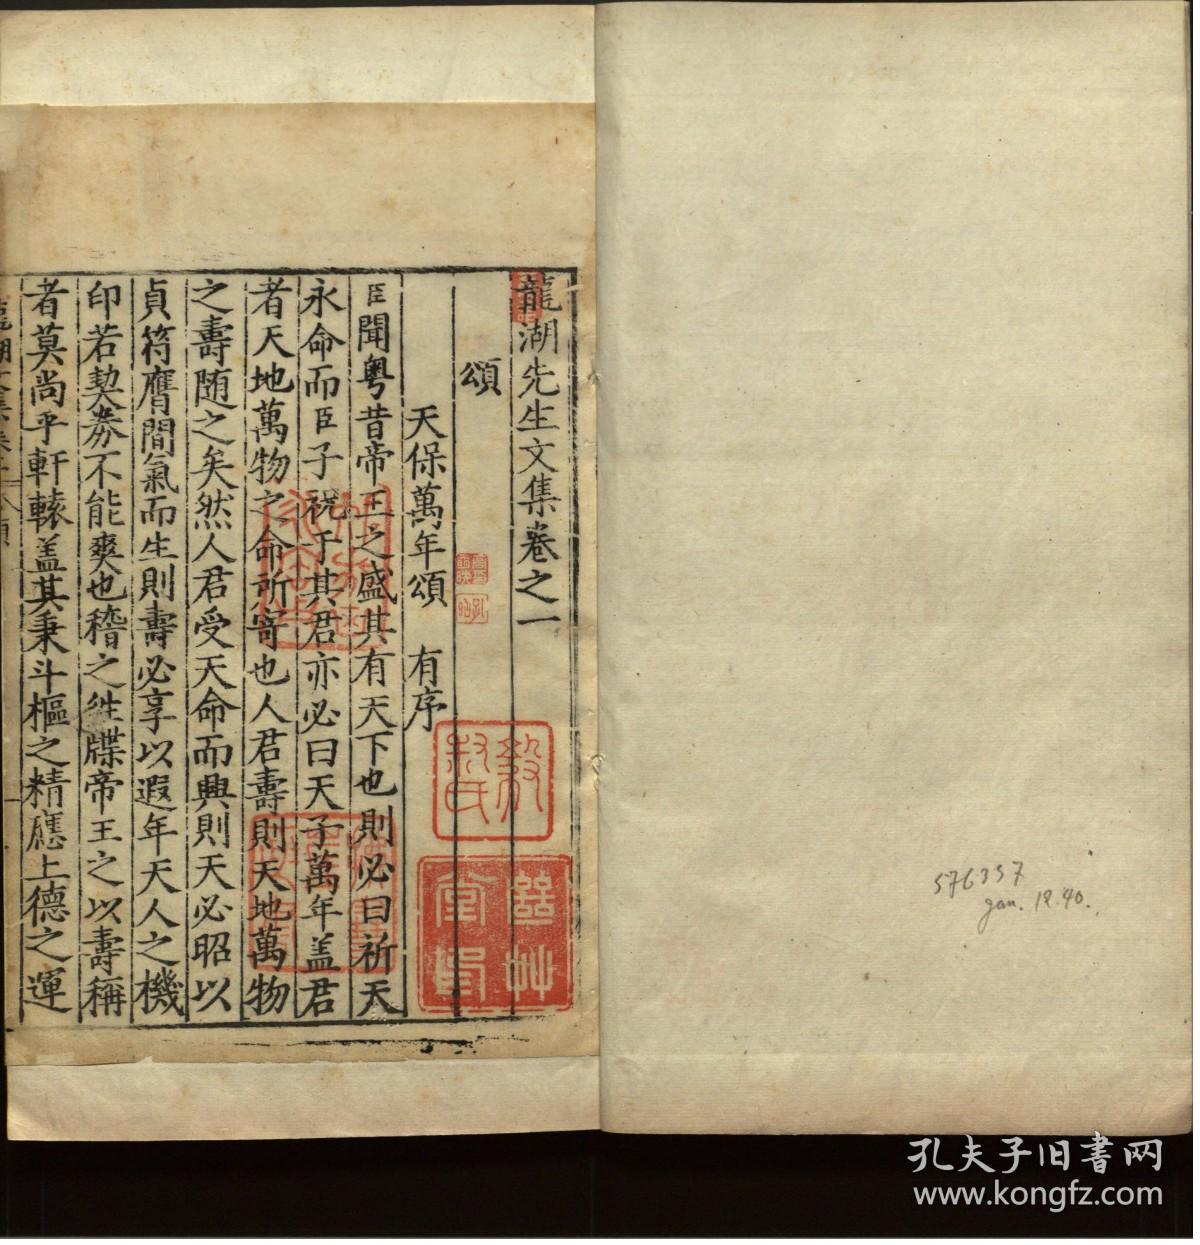 龍湖先生文集卷之一
頌
天保萬年頌　有序
臣聞粤昔帝王之盛其有天下也則必曰祈天
永命而臣子祝于其君亦必曰天子萬年盖君
者天地萬物之命所寄也人君壽則天地萬物
之壽随之矣然人君受天命而興則天必昭以
貞符膺間氣而生則壽必享以遐年天人之機
印若契券不能爽也稽之徃牒帝王之以壽稱
者莫尚乎軒轅盖其秉斗樞之精應上德之運
576357
Jan. 12.40.
孔夫子旧書网
www.kongfz.com